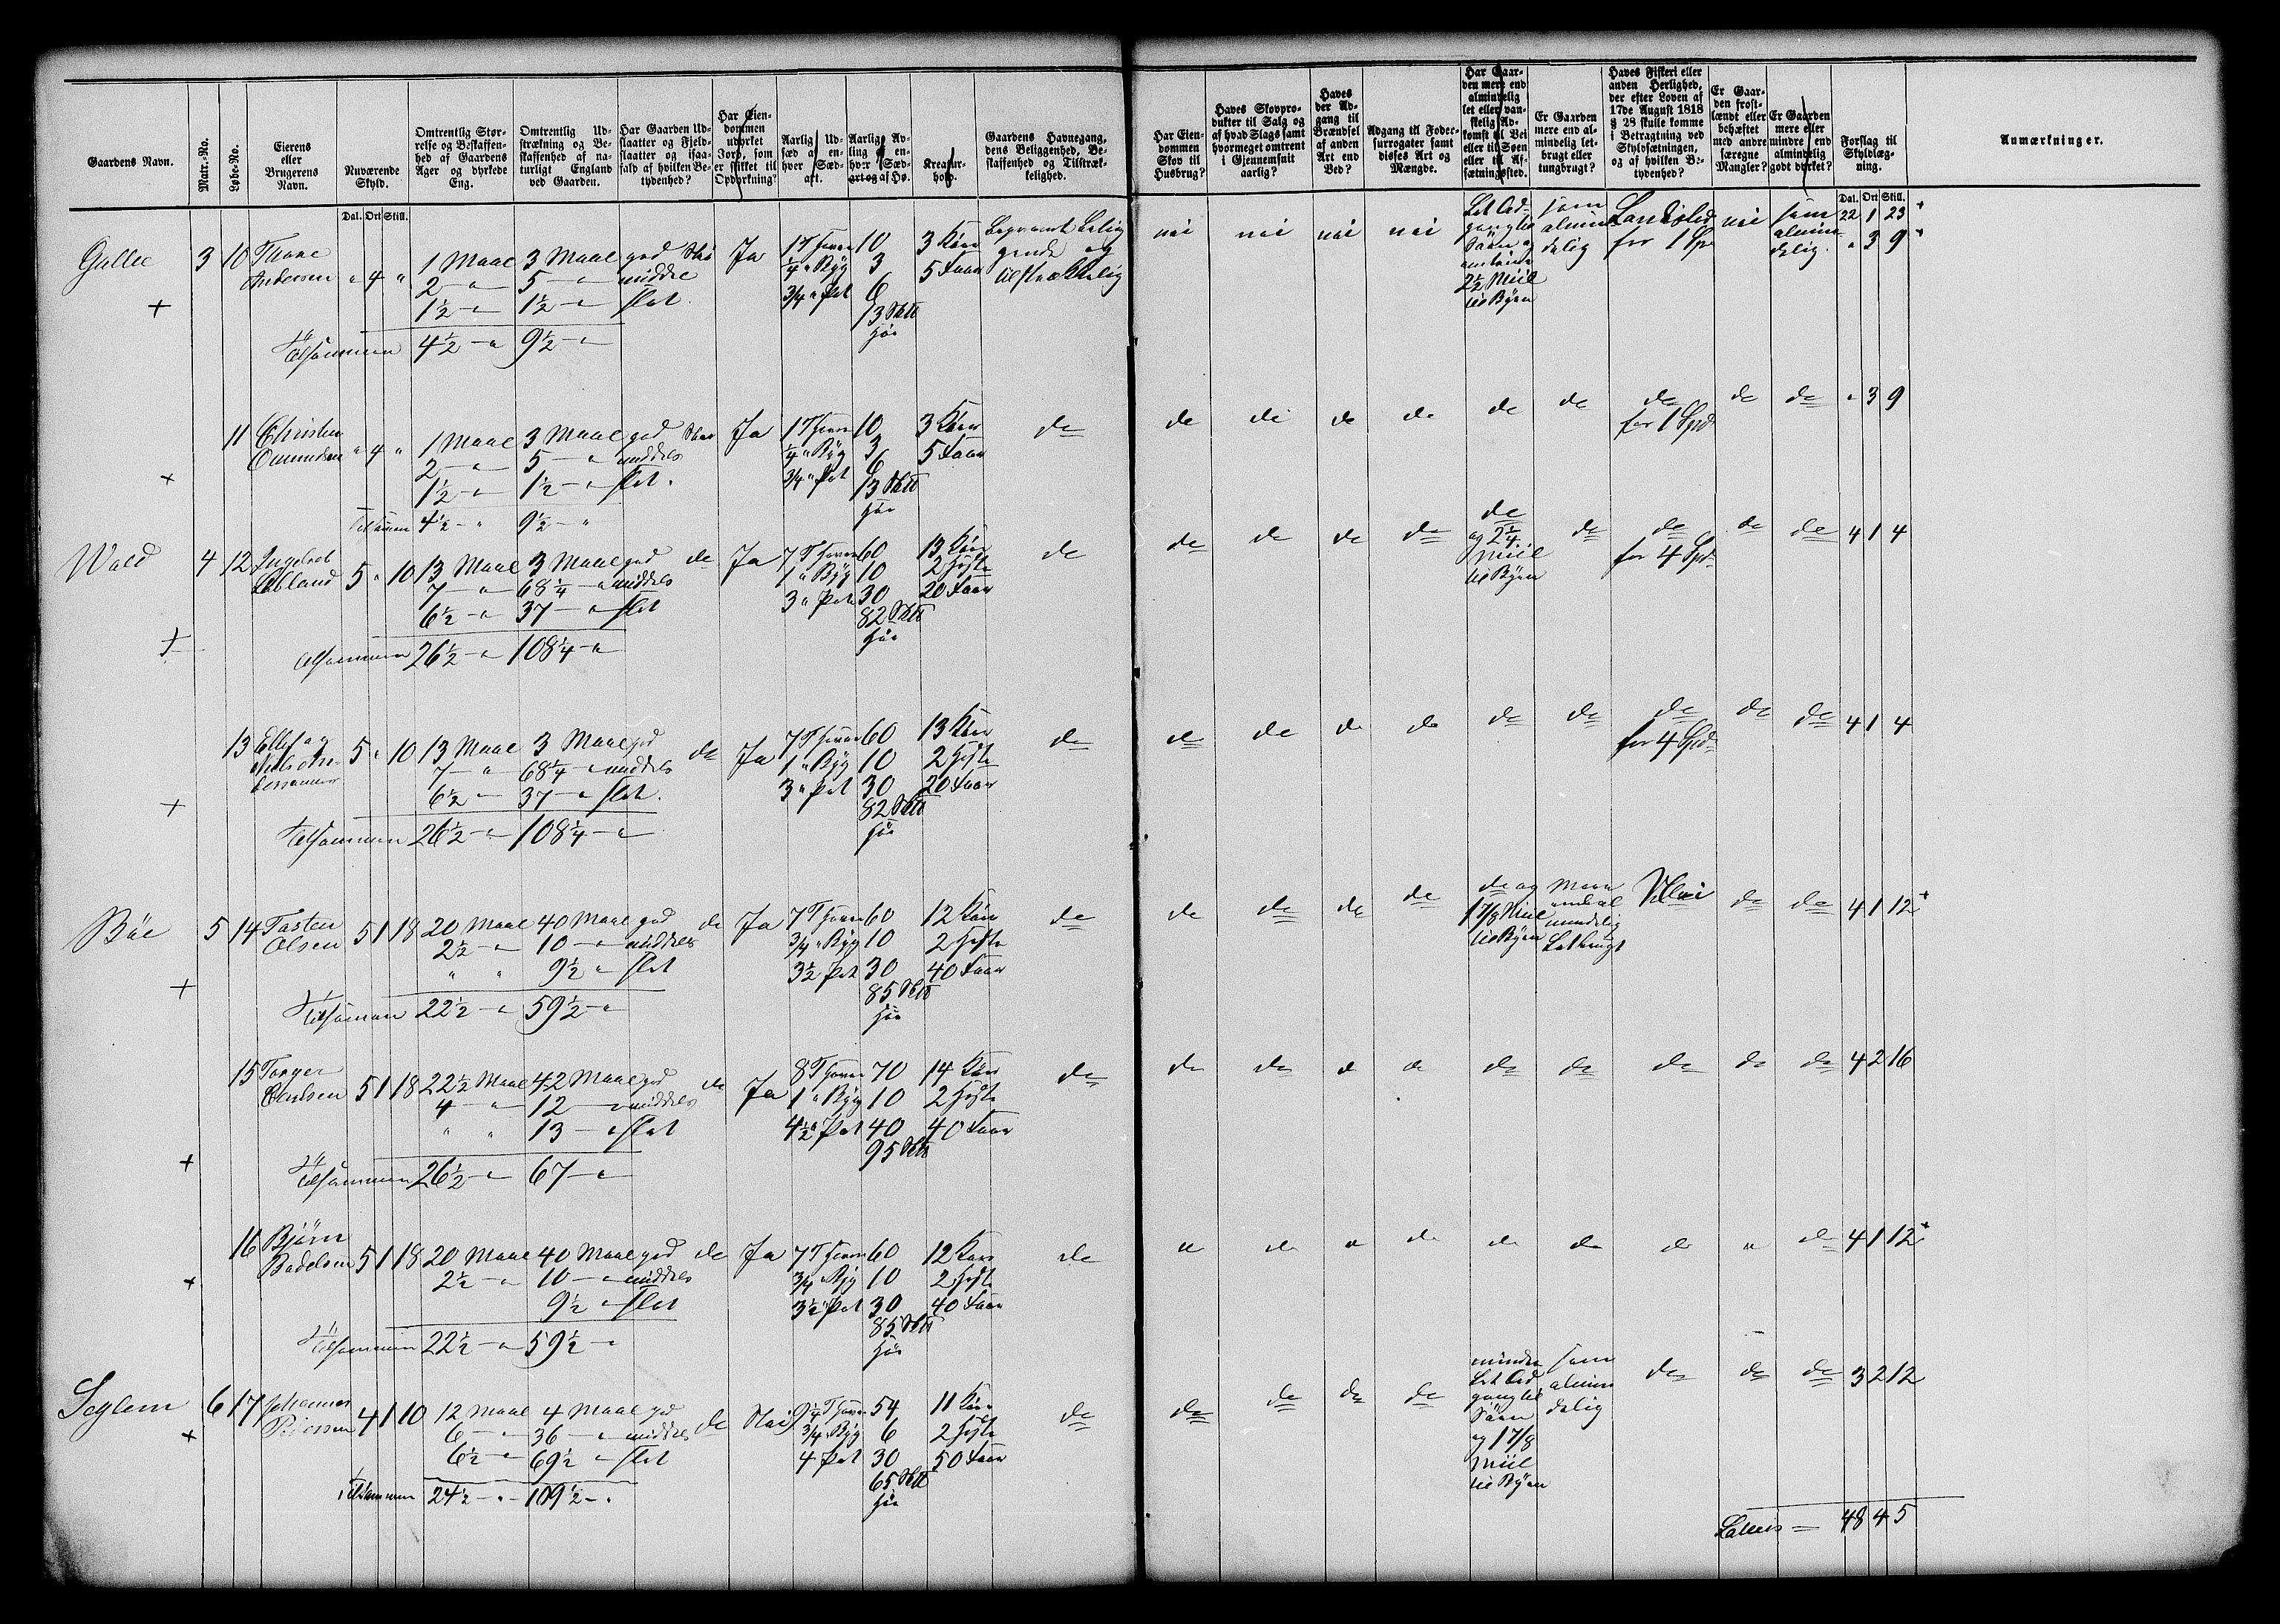 Gaardens Navn.
Matr.-No.
Løbe-No.
Eierens
eller
Brugerens
Navn.
Nuværende
Skyld.
Omtrentlig Stør-
relse og Beskaffen-
hed af Gaardens
Ager og dyrkede
Eng.
Omtrentlig Ud-
strækning og Be-
skaffenhed af na-
turligt England
ved Gaarden.
Har Gaarden Ud-
slaatter og Fjeld-
slaatter og isaa-
fald af hvilken Be-
tydenhed?
Har Eien-
dommen
udyrket
Jord, som
er skikket til
Opdyrkning?
Aarlig Ud-
sæd af en-
hver Sæd-
art.
Aarlig Av-
ling af en-
hver Sæd-
art og af Hø.
Kreatur-
hold.
Gaardens Havnegang,
dens Beliggenhed, Be-
skaffenhed og Tilstræk-
kelighed.
Har Eien-
dommen
Skov til
Husbrug?
Haves Skovpro-
dukter til Salg og
af hvad Slags samt
hvormeget omtrent
i Gjennemsnit
aarlig?
Haves
der Ad-
gang til
Brændsel
af anden
Art end
Ved?
Adgang til Foder-
surrogater samt
disses Art og
Mængde.
Har Gaar-
den mere end
almindelig
let eller van-
skelig Ad-
komst til Vei
eller til Søen
eller til Af-
sætningssted.
Er Gaarden
mere end al-
mindelig let-
brugt eller
tungbrugt?
Haves Fiskeri eller
anden Herlighed,
der efter Loven af
17de August 1818
§ 28 skulle komme
i Betragtning ved
Skyldsætningen,
og af hvilken Be-
tydenhed?
Er Gaar-
den frost-
lændt eller
behæftet
med andre
særegne
Mangler?
Er Gaarden
mere eller
mindre end
almindelig
godt dyrket?
Forslag til
Skyldlæg-
ning.
Anmærkninger.
Dal. Ort Skill.
Dal. Ort Skill.
22 1 23
3 10 Thore 4 1 Maal 3 Maal god Nei Ja 1 T Havre 10 3 Køer
Andersen 2 " 5 " middels 1/4 " Byg 3 5 Faar
1½ " 1½ " slet 3/4 " Pot 6
13 Sk℔
Hø
Tilsammen 4½ " 9½ "
nei nei nei nei Let Ad- som for 1 Spd nei som " 3 9
gang til almin- almin-
Søen og delig delig
2½ Miil
til Byen
11 Christen 4 1 Maal 3 Maal god Nei Ja 1 T Havre 10 3 Køer do
2 " 5 " middels 1/4 " Byg 3 5 Faar
1½ " 1½ " slet 3/4 " Pot 6
13 Sk℔
Hø
Tilsammen 4½ " 9½ "
do do do do do do do do do " 3 9
for 1 Spd
4 12 5 " 10 13 Maal 3 Maal god do Ja 7 T Havre 60 13 Køer do
7 " 68¼ " middels 1 " Byg 10 2 Heste
6½ " 37 " slet 3 " Pot 30 20 Faar
82 Sk℔
Hø
tilsammen 26½ " 108¼ "
do do do do do do do do do 4 1 4
og 2¼ for 4 Spd
Miil
til Byen
13 5 " 10 13 Maal 3 Maal god do Ja 7 T Havre 60 13 Køer do
7 " 68¼ " middels 1 " Byg 10 2 Heste
6½ " 37 " slet 3 " Pot 30 20 Faar
82 Sk℔
Hø
Tilsammen 26½ " 108¼ "
do do do do do do do do do 4 1 4
for 4 Spd
Bøe 5 14 Tosten 5 1 18 20 Maal 40 Maal god do Ja 7 T Havre 60 12 Køer do
Olsen 2½ " 10 " middels 3/4 " Byg 10 2 Heste
" " 9½ " slet 3½ Pot 30 40 Faar
85 Sk℔
Hø
Tilsammen 22½ " 59½ "
do do do do do og do do 4 1 12
1 7/8 Miil
til Byen Letbrugt
15 5 1 18 22½ Maal 42 Maal god do Ja 8 T Havre 70 14 Køer do
4 " 12 " middels 1 " Byg 10 2 Heste
" " 13 " slet 4½ " Pot 40 40 Faar
95 Sk℔
Tilsammen 26½ " 67 "
do do do do do do do do do 4 2 16
16 Bjørn 5 1 18 20 Maal 40 Maal god do Ja 7 T Havre 60 12 Køer do
2½ " 10 " middels 3/4 " Byg 10 2 Heste
9½ " slet 3½ " Pot 30 40 Faar
85 Sk℔
Hø
Tilsammen 22½ " 59½ "
" do " do do do do " do 4 1 12
6 17 Johannes 4 1 10 12 Maal 4 Maal god do Nei 9¼ T Havre 54 11 Køer do
6 " 36 " middels 3/4 Byg 6 2 Heste
6½ " 69½ " slet 4 Pot 30 50 Faar
65 Sk℔
Hø
Tilsammen 24½ " 109½ "
do do do do mindre som do do do 3 2 12
Let Ad- almin-
gang til delig
Søen
og 1 7/8
Miil
til Byen
Lateris = 48 4 5